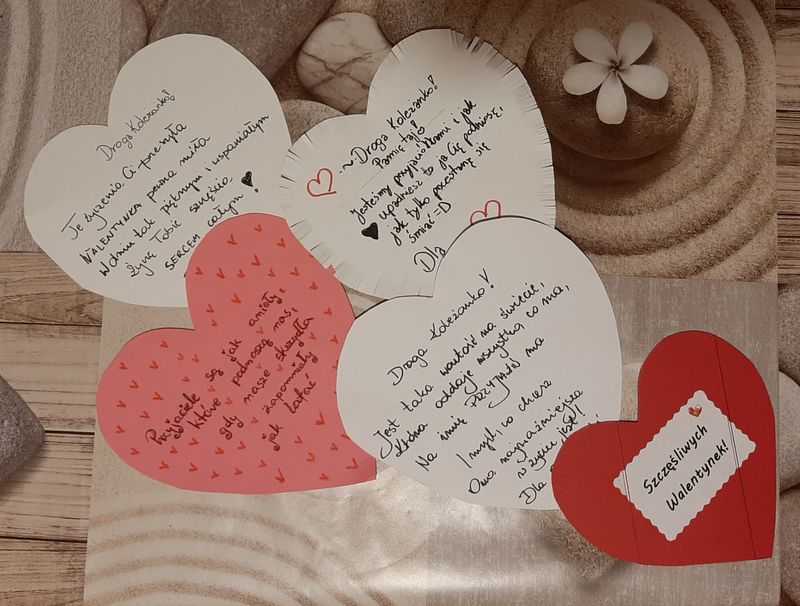 Droga Koleżanko!
Te życzenia Ci przesyła
WALENTYNKA pewna miła
W dniu tak pięknym i wspaniałym
Życzę Tobie szczęścia
SERCEM całym!
~Droga Koleżanko!
Pamiętaj!
Jesteśmy przyjaciółkami i jak
upadniesz to ja Cię podniosę,
jak tylko przestanę się
śmiać =D
Dla
Przyjaciele są jak anioły,
które podnoszą nas,
gdy nasze skrzydła
zapomniały
jak latać
Droga Koleżanko!
Jest taka wartość na świecie,
Która oddaje wszystko co ma,
Na imię PRZYJAŹŃ ma
I myśl, co chcesz
Ona najważniejsza
w życiu jest!
Dla
Szczęśliwych
Walentynek!